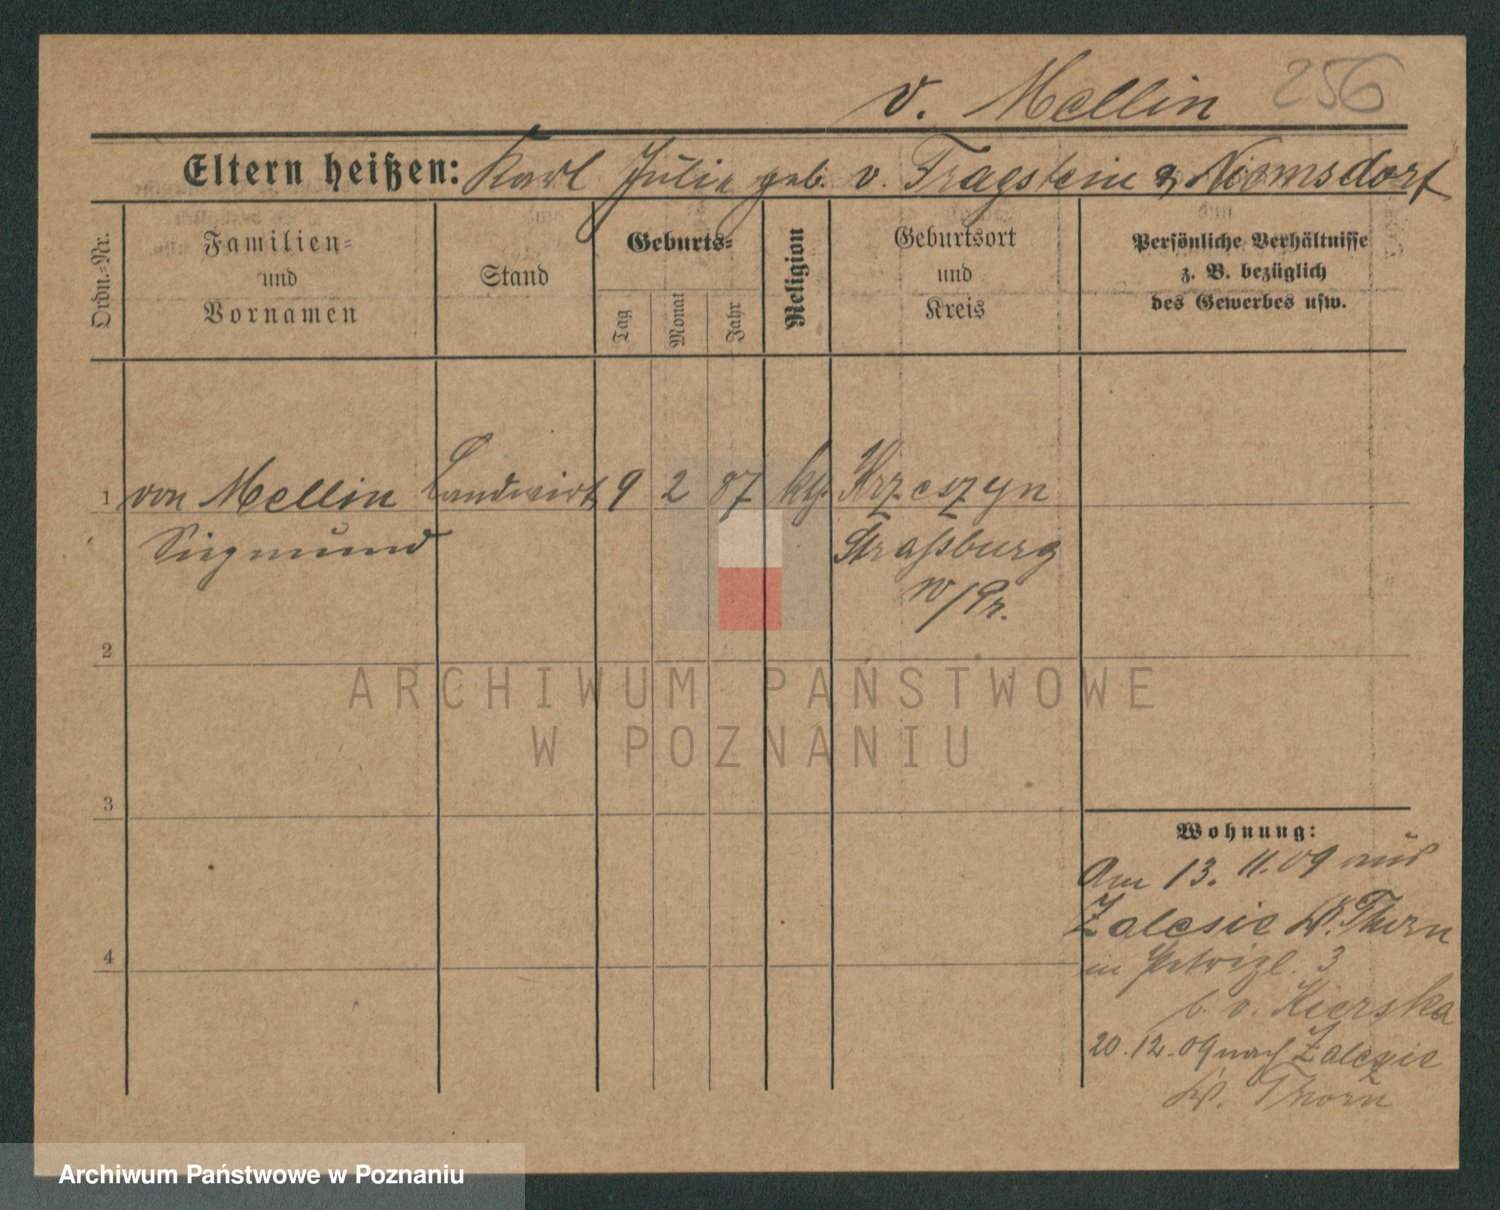 v. Mellin 256
Eltern heißen: Karl Julie geb. v. Fragstein & Niemsdorf
Ordn.=Nr.
Familien=
und
Vornamen
Stand
Geburts=
Tag
Monat
Jahr
Religion
Geburtsort
und
Kreis
Persönliche Verhältnisse
z. B. bezüglich
des Gewerbes usw.
1 von Mellin Landwirt 9 2 87 Krzeszyn
Siegmund Straßburg
W/Pr.
2
ARCHIWUM PAŃSTWOWE
W POZNANIU
3
Wohnung:
Am 13. 11. 09 aus
Zalesie Kr. Thorn
in 3
b. v. Kierska
20.12.09 nach Zalesie
Kr. Thorn
4
Archiwum Państwowe w Poznaniu